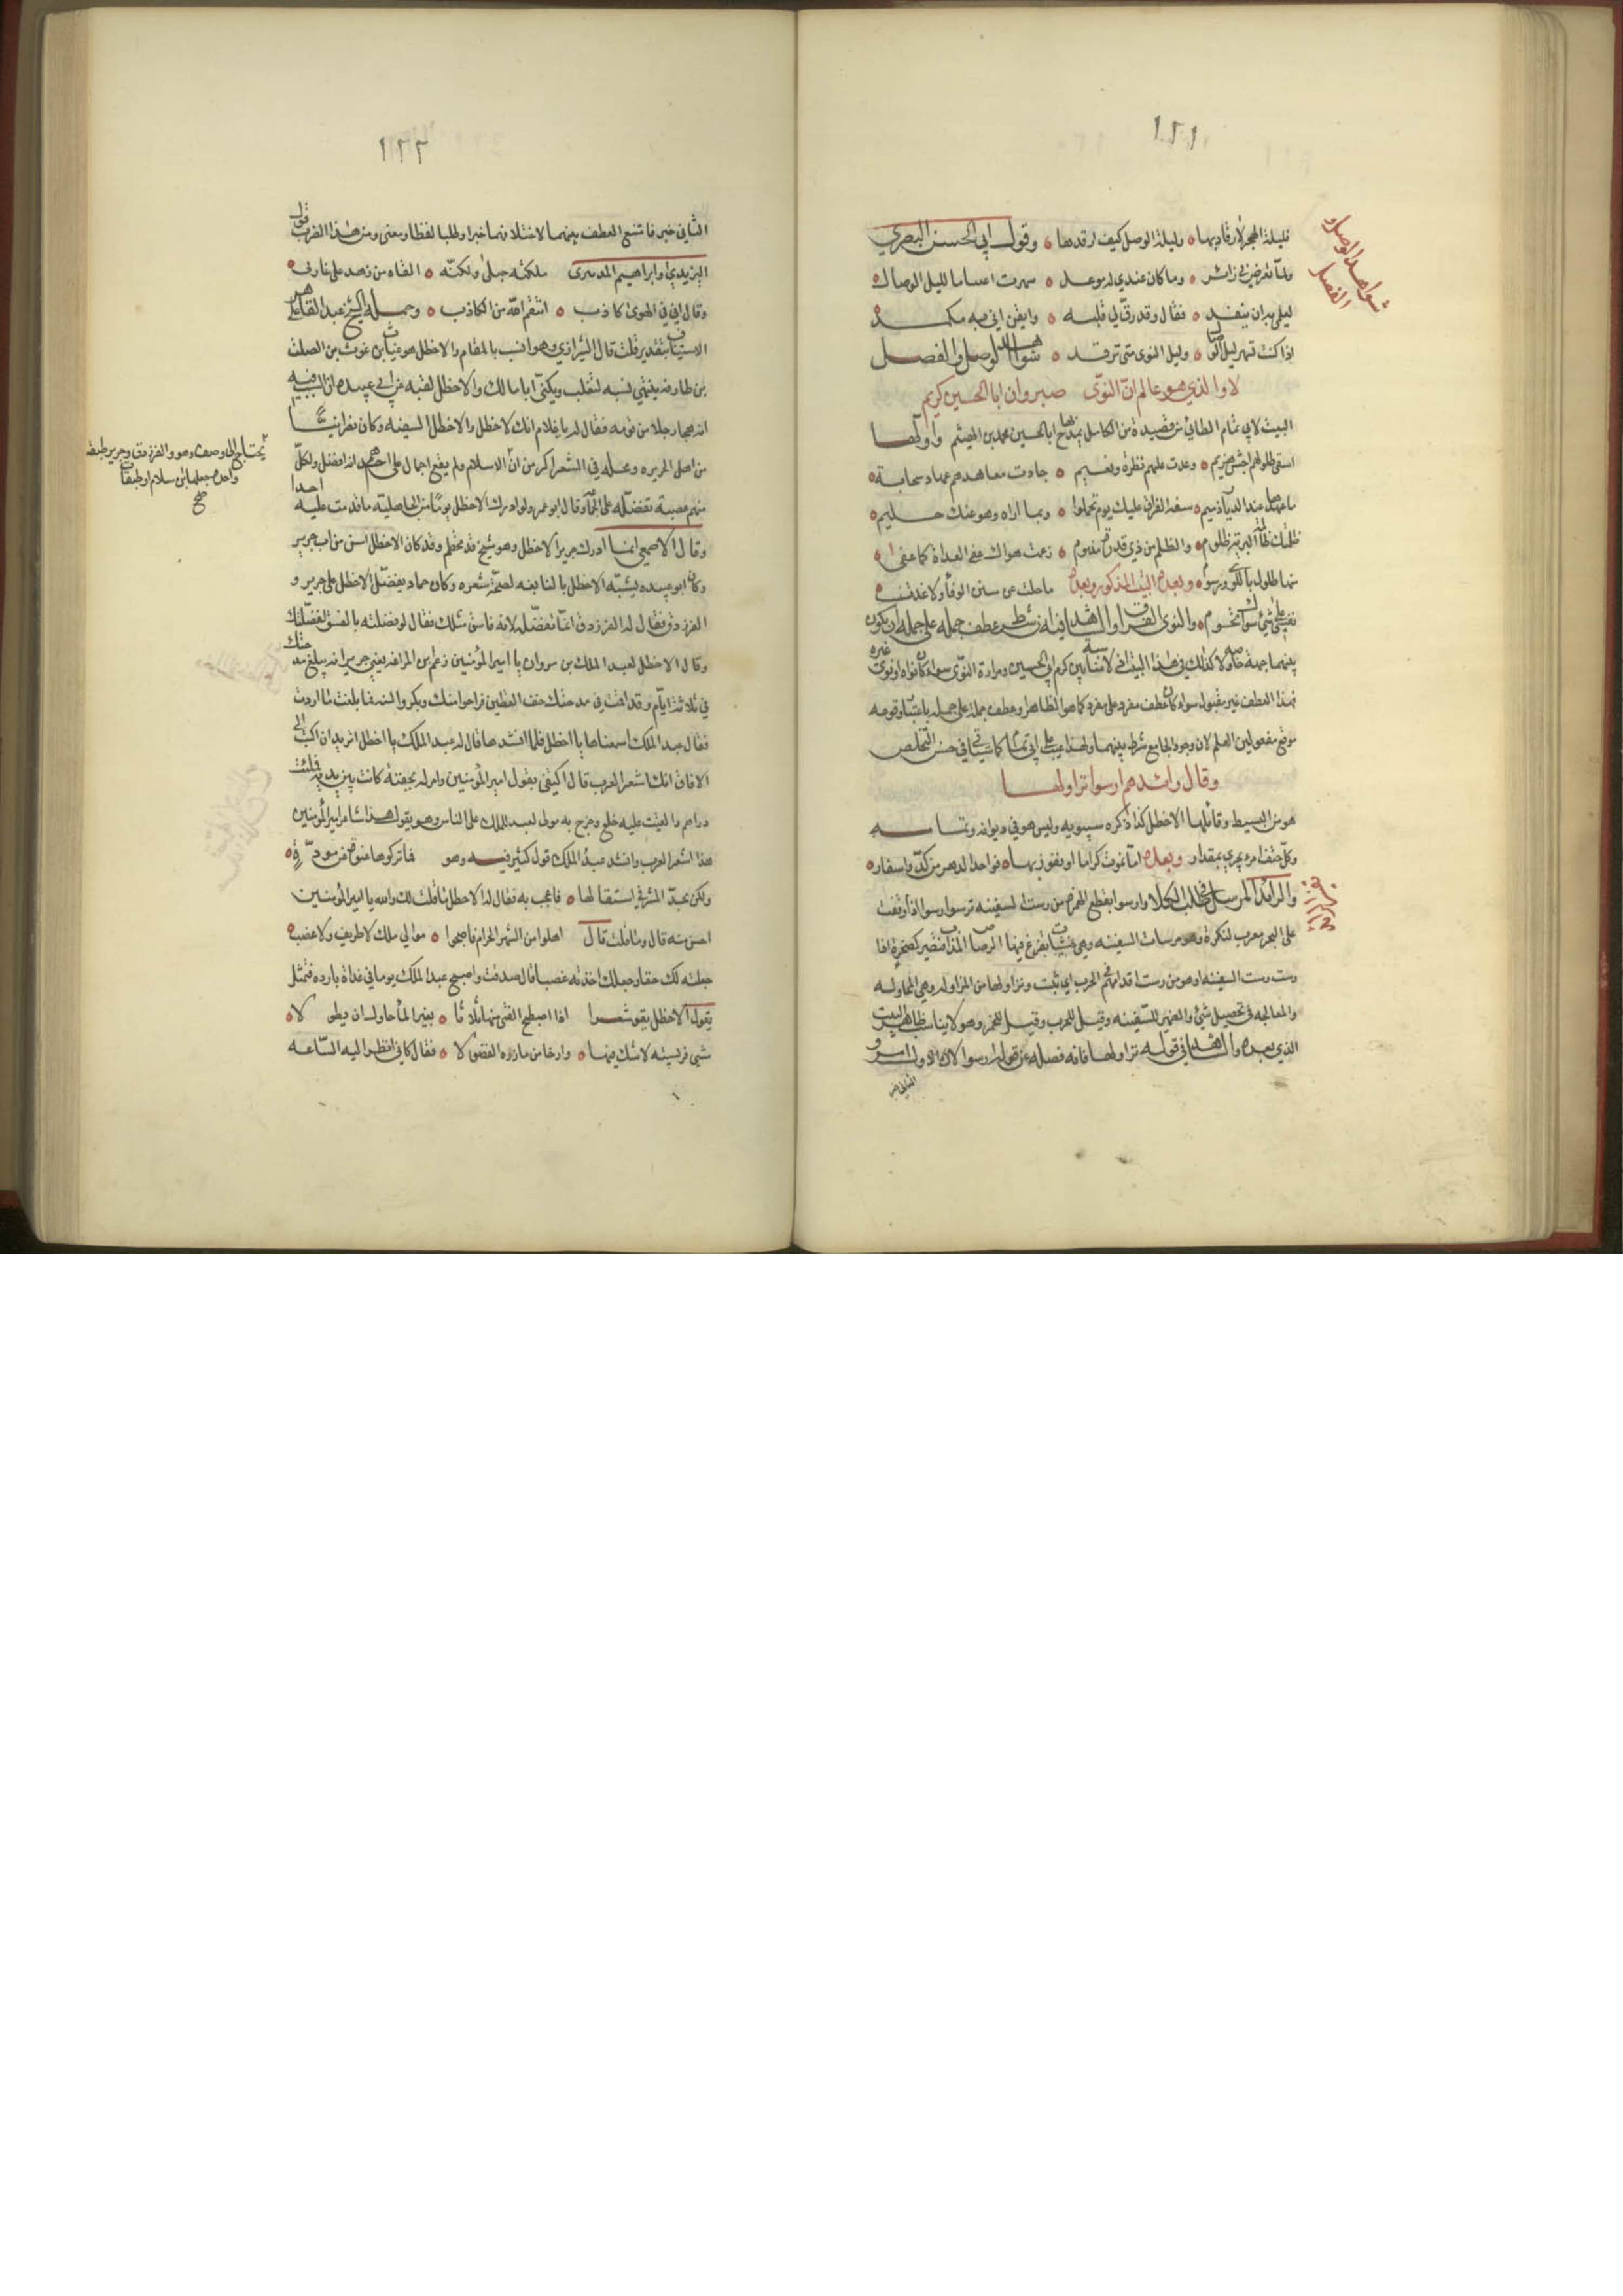 ١٢١
شواهد الوصل و
الفصل
فليلة الهجر لا رقاد بها ه وليلة الوصل كيف ارقدها ه وقول ابي الحسن البصري
ولما تعرض لي زائر ه وما كان عندي له موعد ه سهرت اغتناما لليل الوصال ه
ليلي بدان ينفد ه فقال وقد رق لي قلبه ه وايقن اني به مكمد ه
اذا كنت تسهر ليل الوصال ه وليل النوى متى ترقد ه شواهد الوصل والفصل
لا والذي هو عالم ان النوى صبر وان ابا الحسين كريم
البيت لابي تمام الطائي من قصيدة من الكامل يمدح بها ابا الحسين محمد بن الهيثم واولها
اسقى طلولهم اجش هزيم ه وغدت عليهم نظرة ونعيم ه جادت معاهدهم عهاد سحابة ه
ما عهدها عند الديار ذميم ه سفه الفراق عليك يوم تحملوا ه وبما اراه وهو عنك حليم ه
ظلمتك ظالمة البرئ ظلوم ه والظلم من ذي قدرة مذموم ه زعمت هواك عفى الغداة كما عفى ه
منها طلول باللوى ورسوم ه وبعده البيت المذكور وبعده ما حلت عن سنن الوفاء ولا غدت ه
نفسي على شئ سواك تحوم ه والنوى الفراق والشاهد فيه شرط عطف جملة على جملة ان يكون
بينهما جهة جامعة ولا كذلك في هذا البيت لانه لا مناسبة بين كرم ابي الحسين ومرارة النوى سواء كان نواه او نوى غيره
فهذا العطف غير مقبول سواء كان عطف مفرد على مفرد كما هو الظاهر او عطف جملة على جملة باعتبار وقوعه
موقع مفعولين العلم لان وجود الجامع شرط بينهما ولهذا عيب على ابي تمام كما سيأتي في حسن التخلص
وقال رائدهم ارسوا نزاولها
هو من البسيط وقائلها الاخطل كذا ذكره سيبويه وليس هو في ديوانه وتمامه
وكل حتف امرء يجري بمقدار وبعده اما نموت كراما او نفوز بها ه فواحد الدهر من كد واسفار ه
والرائد المرسل في طلب الكلا وارسوا بقطع الهمزة من رست السفينة ترسوا رسوا اذا وقفت
على البحر معرب لنكرة وهو مرسات السفينة وهي خشبات يفرغ فيها الرصاص المذاب فتصير كصخرة اذا
رست رست السفينة او هو من رست اقدامهم في الحرب اي ثبتت ونزاولها من المزاولة وهي المحاولة
والمعالجة في تحصيل شئ والضمير للسفينة وقيل للحرب وقيل للخمر وهو لا يناسب ظاهر البيت
الذي بعده والشاهد في قوله نزاولها فانه فصله عن قوله ارسوا لان الاول امر و
الثاني خبر
١٢٢
الثاني خبر فامتنع العطف بينهما لاختلافهما خبرا وطلبا لفظا ومعنى ومن هذا الضرب قول
اليزيدي وابراهيم المدبري ملكته حبلى ولكنه ه القاه من زهد على غاربي ه
وقال اني في الهوى كاذب ه انتقم الله من الكاذب ه وحمله الشيخ عبد القاهر على
الاستيناف بتقدير قلت قال الشيرازي وهو انسب بالمقام والاخطل هو غياث بن غوث بن الصلت
بن طارقة ينتهي نسبه لتغلب ويكنى ابا مالك والاخطل لقبه عن ابي عبيده ان السبب فيه
انه هجا رجلا من قومه فقال له يا غلام انك لاخطل والاخطل السفيه وكان نصرانيا
من اهل الجزيرة ومحله في الشعر اكبر من ان الاسلام ولم يقع اجمال على احدهم انه افضل ولكل
يحتاج الى وصفه وهو والفرزدق وجرير طبقة
واحدة جعلها ابن سلام اول طبقات
صح
منهم عصبة تفضله على الجماعة وقال ابو عمرو لو ادرك الاخطل يوما من الجاهلية ما قدمت عليه احدا
وقال الاصمعي انما ادرك جرير الاخطل وهو شيخ قد تحطم وقد كان الاخطل اسن من اب جرير
وكان ابو عبيده يشبه الاخطل بالنابغه لصحة شعره وكان حماد يفضل الاخطل على جرير و
الفرزدق فقال له الفرزدق انما تفضله لانه فاسق مثلك فقال لو فضلته بالفسق لفضلتك
وقال الاخطل لعبد الملك بن مروان يا امير المؤمنين زعم ابن المراغة يعني جرير انه يبلغ مدحتك
في ثلاثة ايام وقد اقمت في مدحتك خف القطين فراحوا منك وبكروا السنة فما بلغت ما اردت
فقال عبد الملك اسمعناها يا اخطل فلما انشدها قال له عبد الملك يا اخطل اتريد ان اكتب الى
الافاق انك اشعر العرب قال اكتفى بقول امير المؤمنين وامر له بجفنة كانت بين يديه فملئت
دراهم والقيت عليه خلع وخرج به مولى لعبد الملك على الناس وهو يقول هذا شاعر امير المؤمنين
هذا اشعر العرب وانشد عبد الملك قول كثير فيه وهو فما تركوها عنوة عن مودة ه
ولكن بحد المشرفي استقالها ه فاعجب به فقال له الاخطل ما قلت لك والله يا امير المؤمنين
احسن منه قال وما قلت قال اهلوا من الشهر الحرام فاصبحوا ه موالي ملك لا طريف ولا غصب ه
جعلته لك حقا وجعلك اخذته غصبا قال صدقت واصبح عبد الملك يوما في غداة باردة فتمثل
بقول الاخطل يقو شعرا اذا اصطبح الفتى منها ثلاثا ه بغير الماء حاول ان يطولا ه
مشى قرشية لا شك فيها ه وارخا من مازره الفضولا ه فقال كاني انظر اليه الساعه